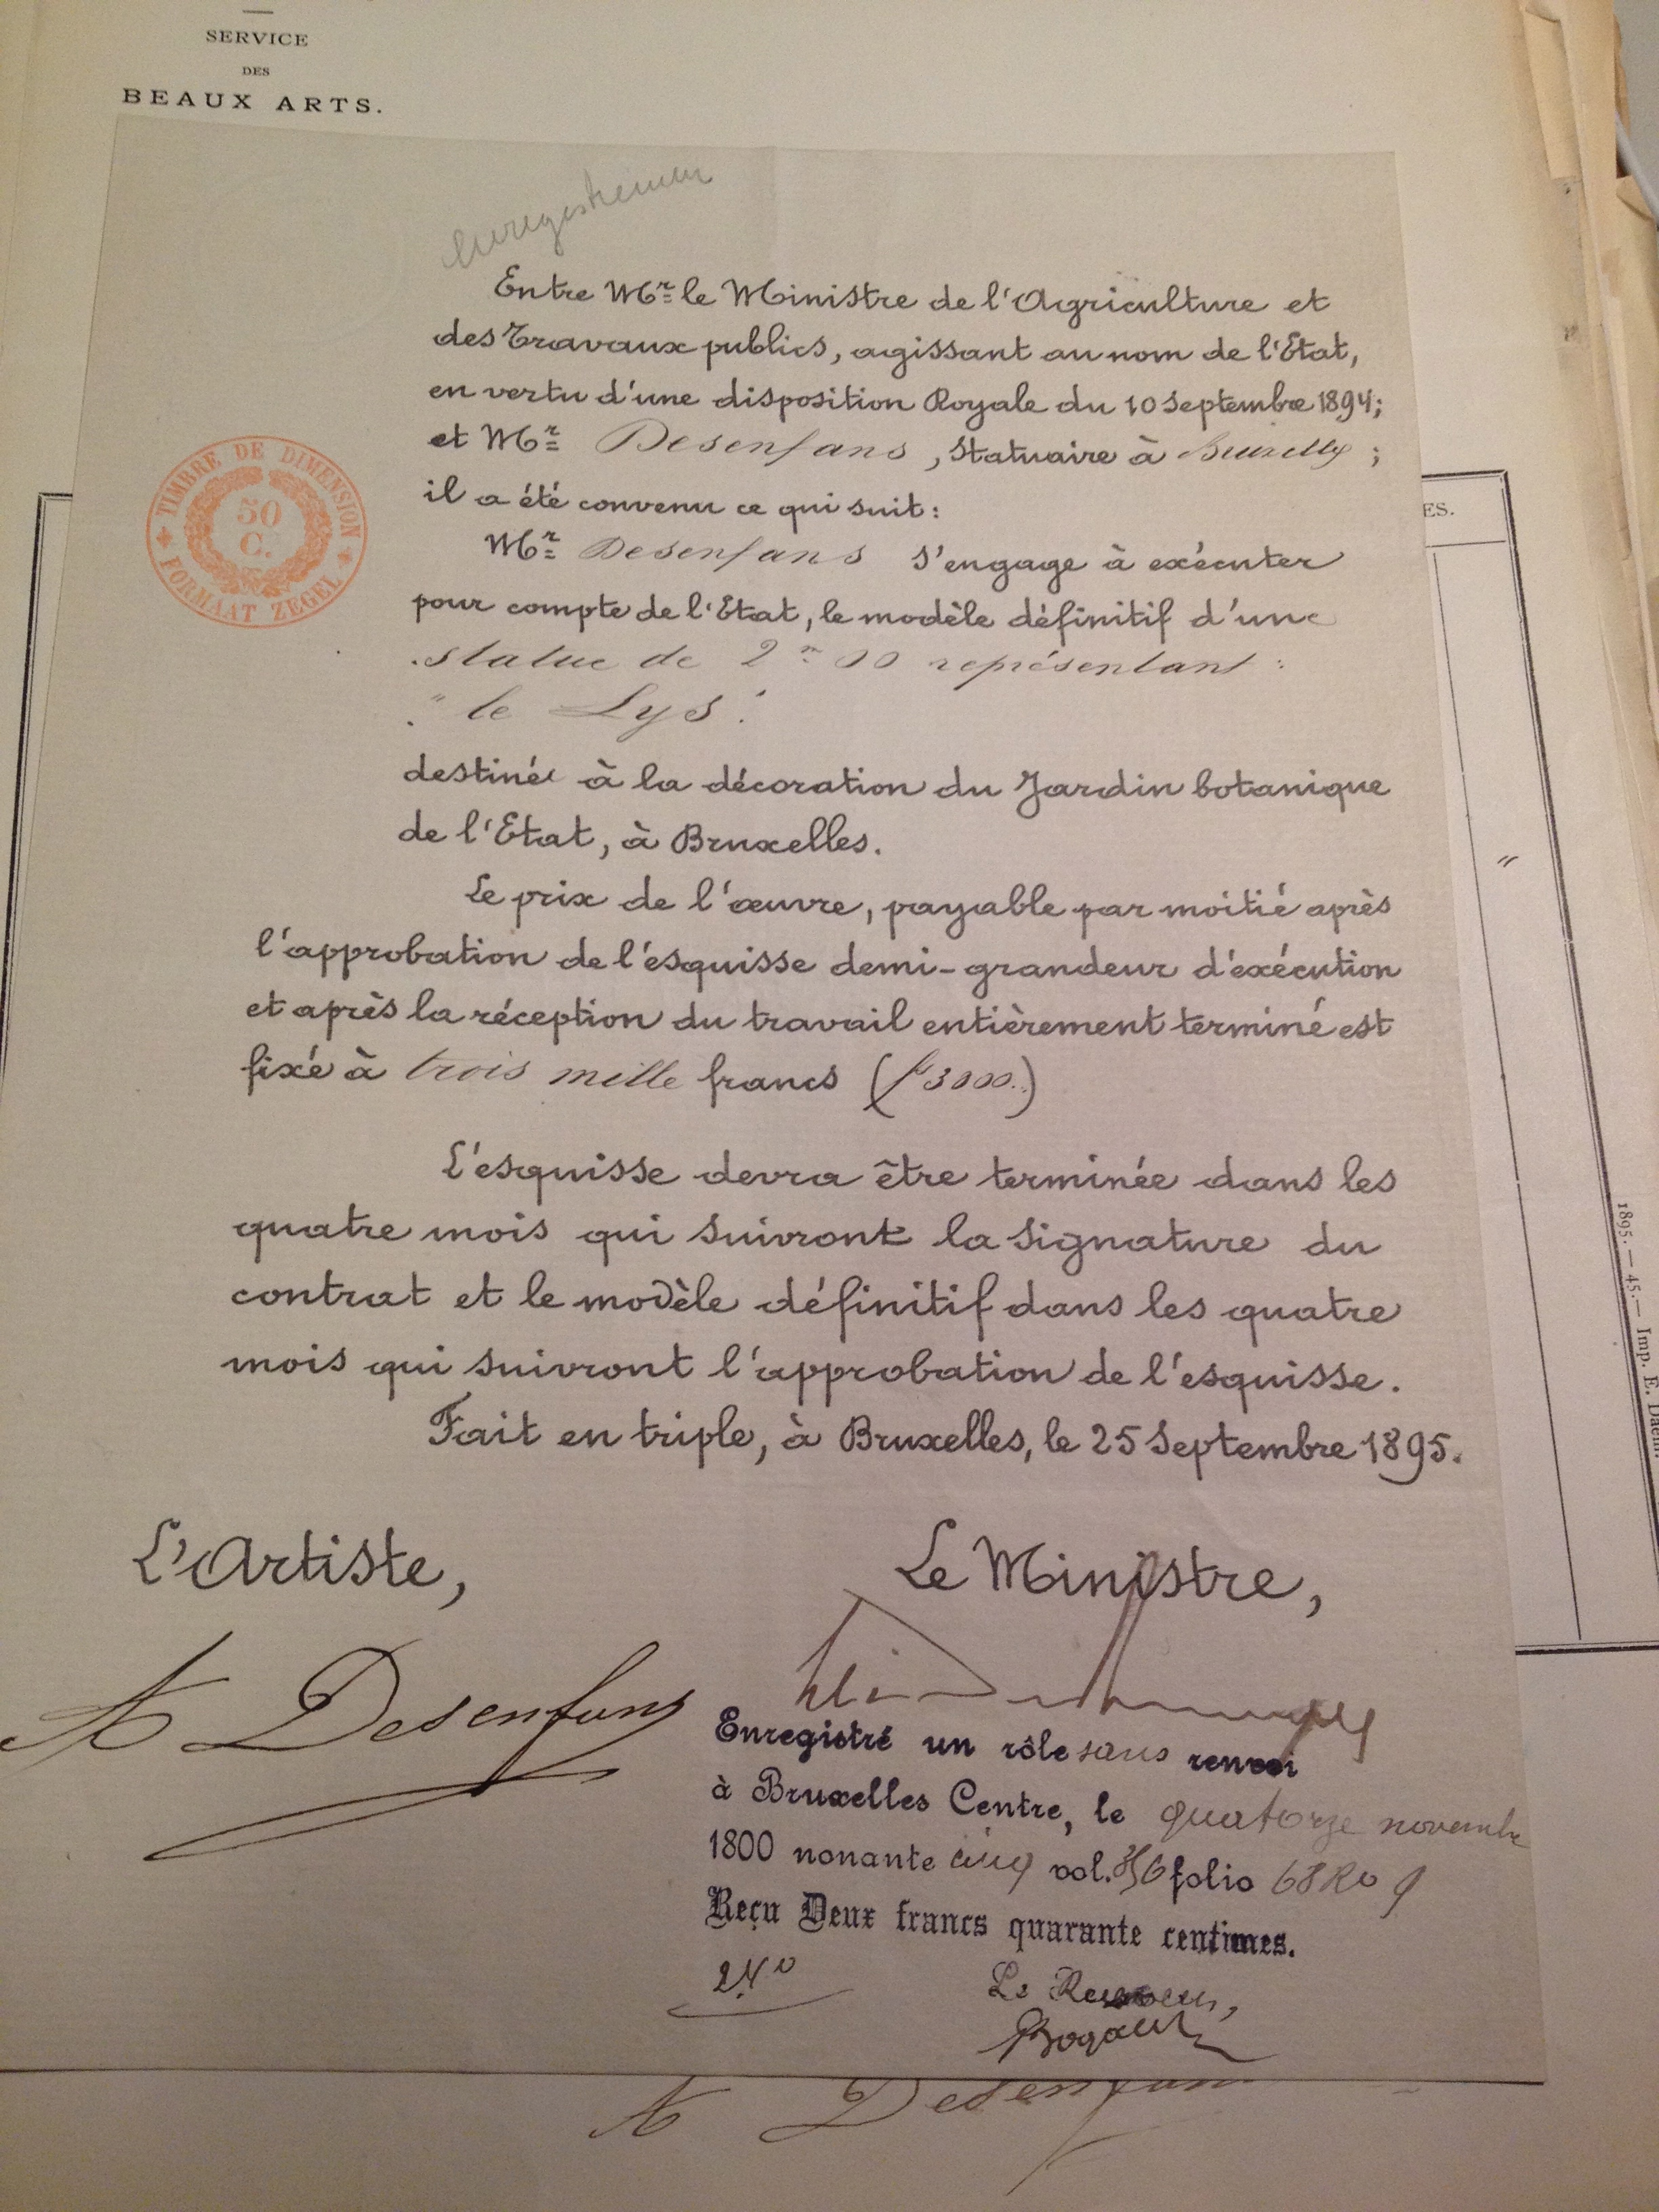 SERVICE
DES
BEAUX ARTS.
Enregistrement
Entre Mr le Ministre de l'Agriculture et
des Travaux publics, agissant au nom de l'Etat,
en vertu d'une disposition Royale du 10 Septembre 1894;
et Mr Desenfans, Statuaire à Bruxelles;
il a été convenu ce qui suit:
Mr Desenfans s'engage à exécuter
pour compte de l'Etat, le modèle définitif d'une
statue de 2m00 représentant:
"le Lys".
destinée à la décoration du Jardin botanique
de l'Etat, à Bruxelles.
Le prix de l'œuvre, payable par moitié après
l'approbation de l'ésquisse demi-grandeur d'exécution
et après la réception du travail entièrement terminé est
fixé à trois mille francs (f 3000..)
L'esquisse devra être terminée dans les
quatre mois qui suivront la signature du
contrat et le modèle définitif dans les quatre
mois qui suivront l'approbation de l'ésquisse.
Fait en triple, à Bruxelles, le 25 Septembre 1895.
L'Artiste,
Le Ministre,
A Desenfans
Enregistré un rôle sans renvoi
à Bruxelles Centre, le quatorze novembre
1800 nonante cinq vol. folio 68 Ro 9
Reçu Deux francs quarante centimes.
2,40
Le Receveur,
A Desenfans
TIMBRE DE DIMENSION
50
C.
FORMAAT ZEGEL
ES.
"
1895. — 45. — Imp. E. Daem.